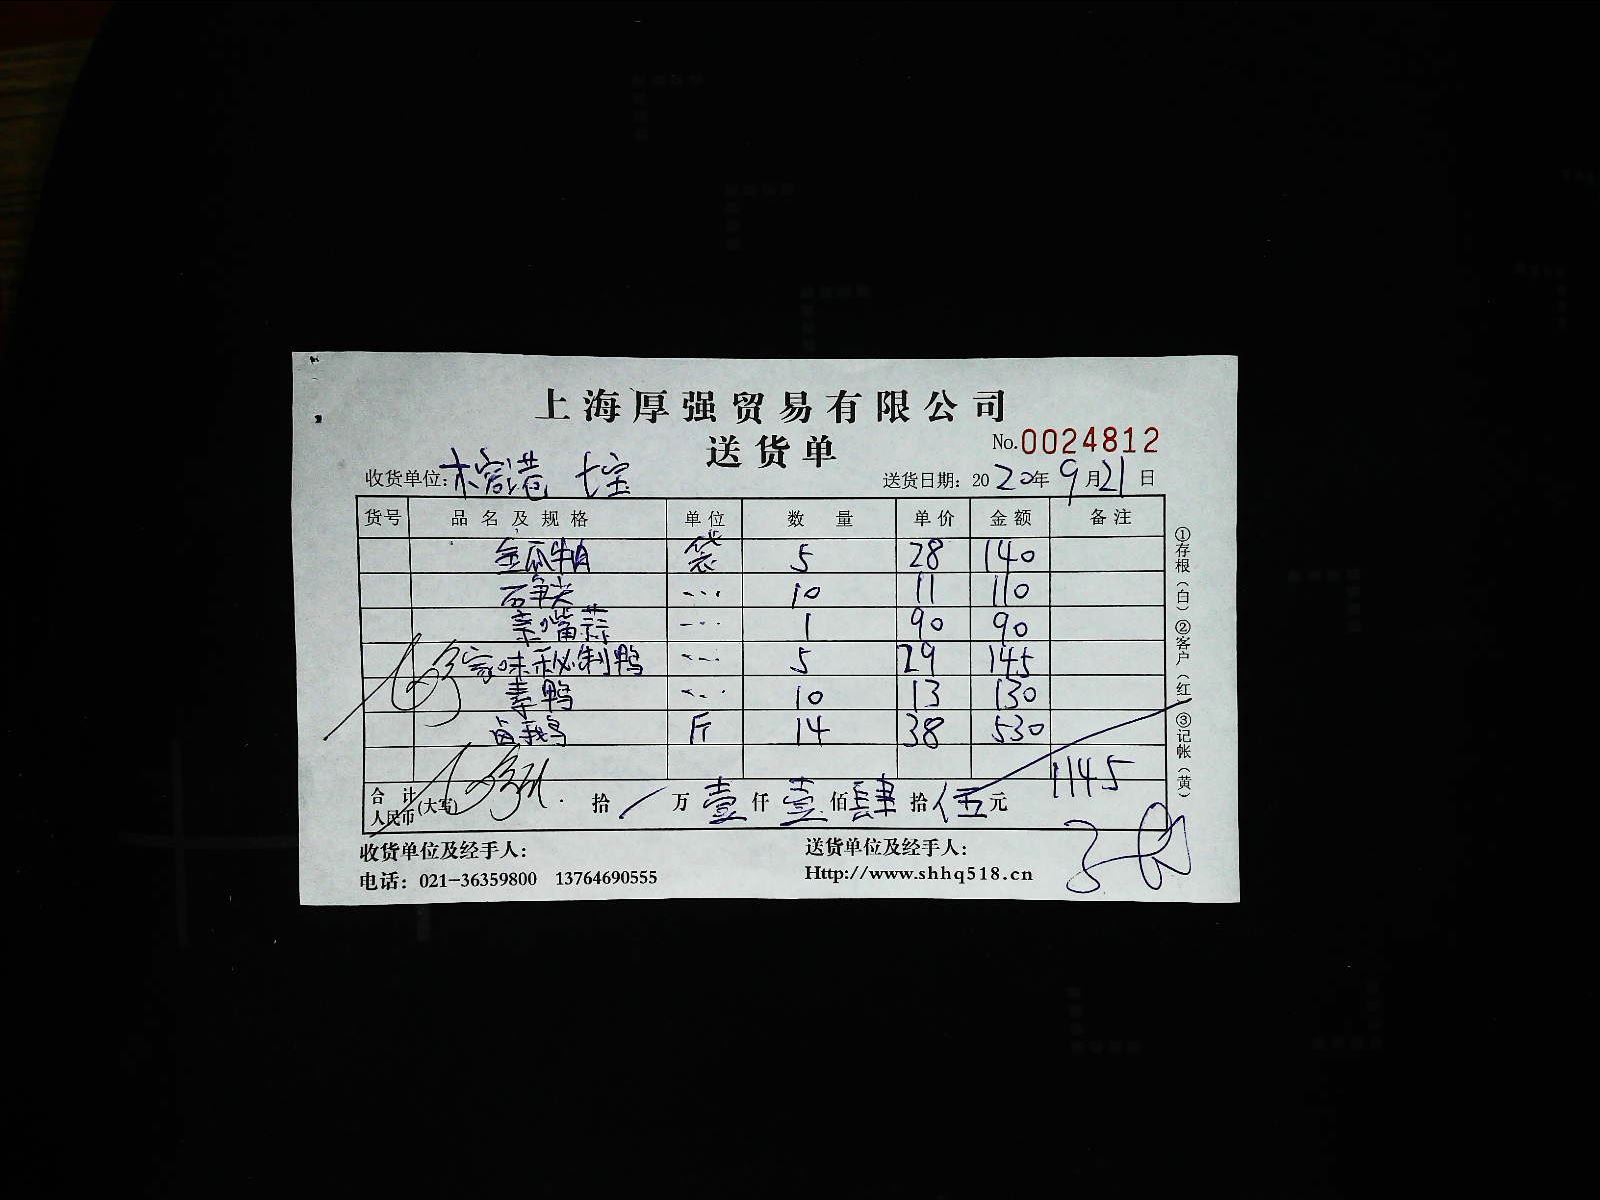 上海厚强贸易有限公司
送货单 No.0024812
收货单位: 七宝 送货日期: 2020年9月21日
货号 品名及规格 单位 数量 单价 金额 备注
金瓜 袋 5 28 140
10 11 110
1 90 90
家味秘制鸭 5 29 145
素鸭 10 13 130
卤鹅 斤 14 38 530
1145
合计人民币(大写) 拾 万壹仟壹佰肆拾伍元
收货单位及经手人: 送货单位及经手人:
电话: 021-36359800 13764690555 Http://www.shhq518.cn
①存根(白)②客户(红)③记帐(黄)